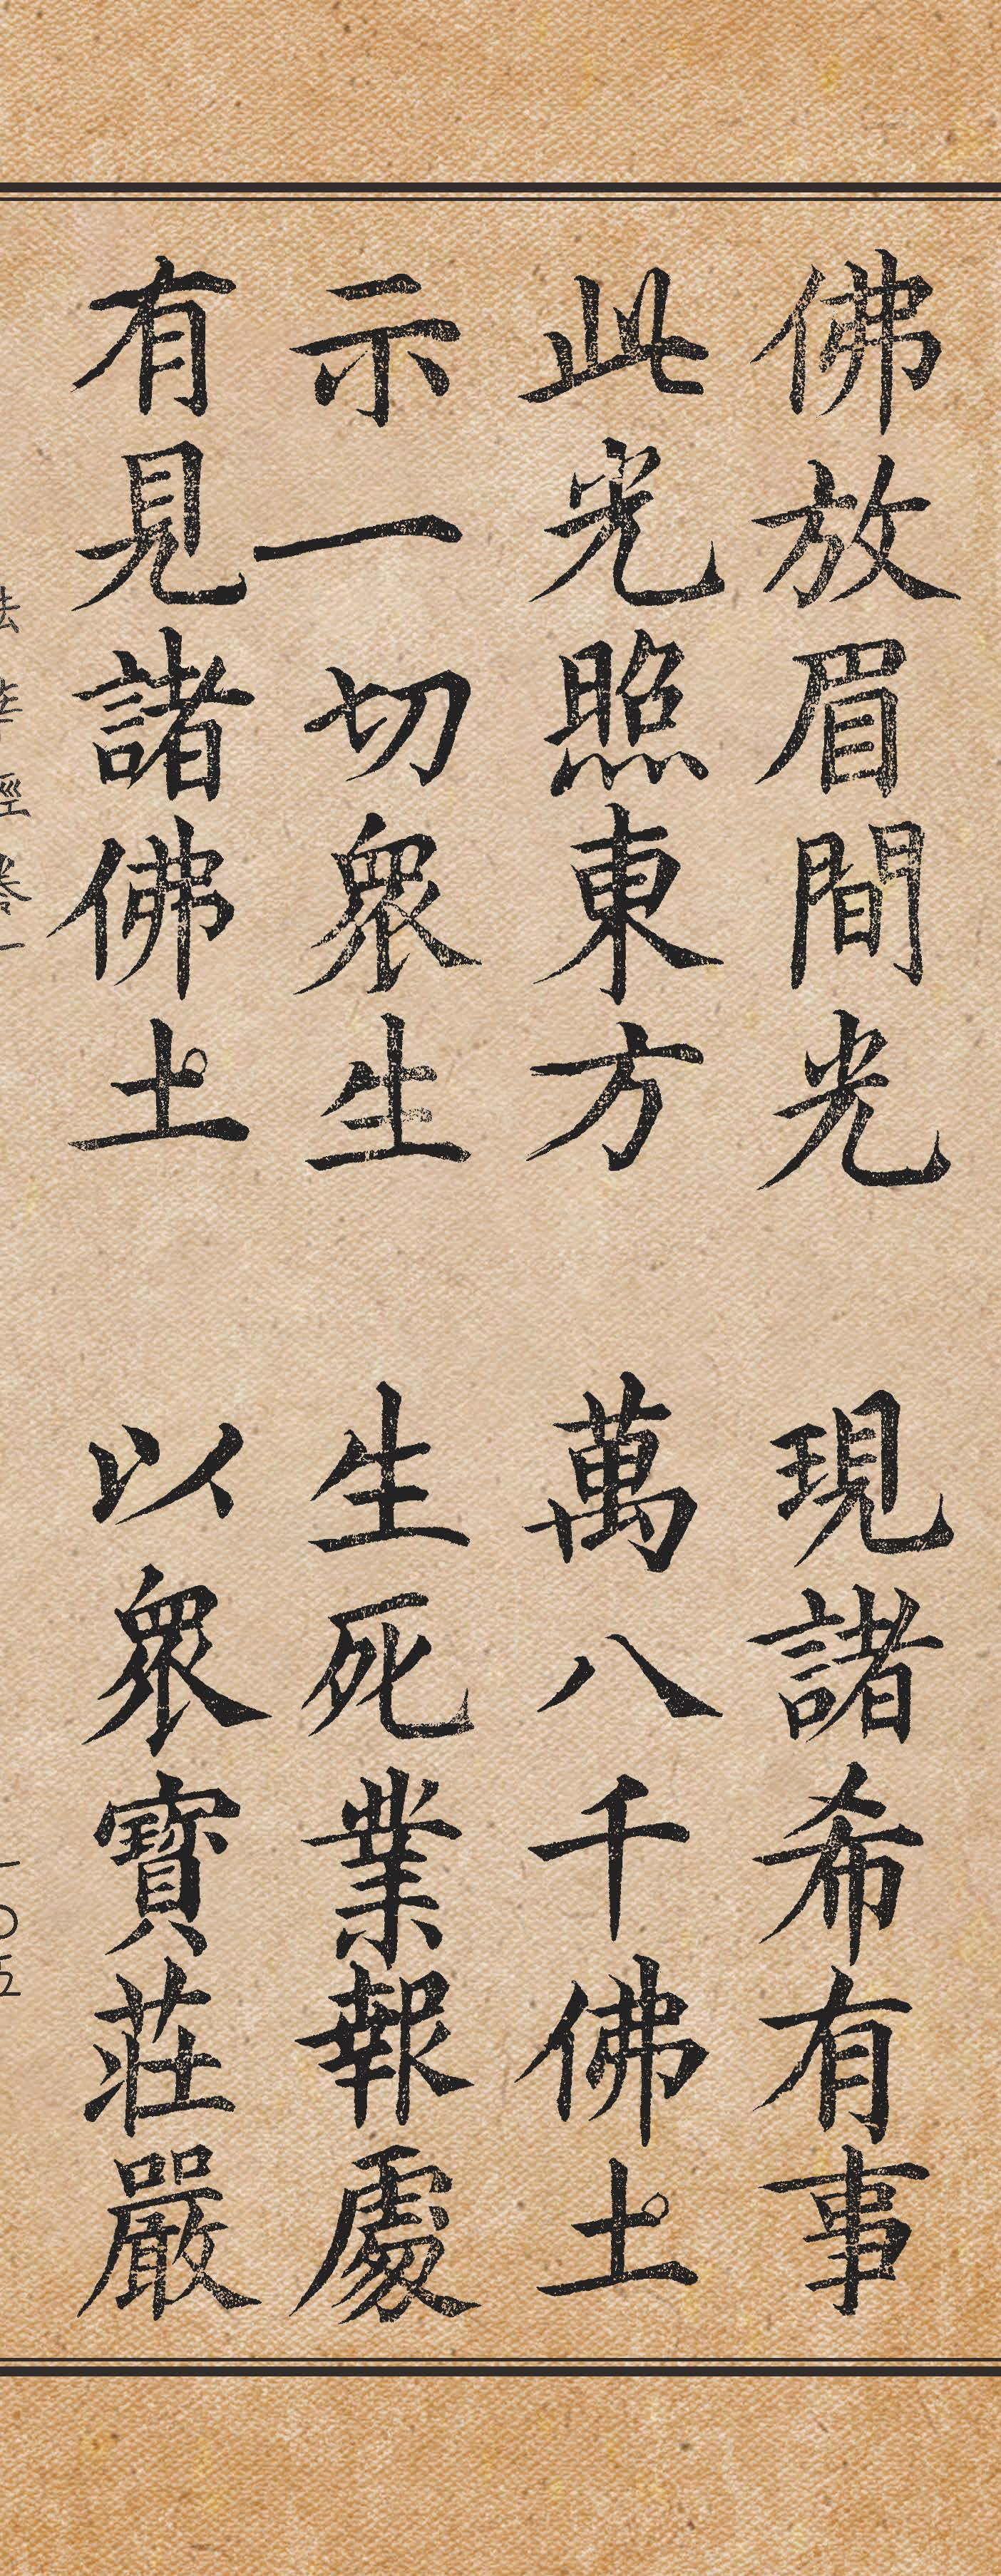 佛放眉間光　現諸希有事
此光照東方　萬八千佛土
示一切眾生　生死業報處
有見諸佛土　以眾寶莊嚴
法華經卷一　一〇五